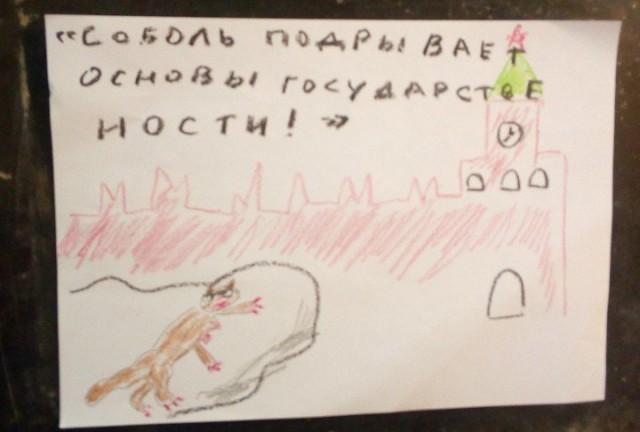 «СОБОЛЬ ПОДРЫВАЕТ
ОСНОВЫ ГОСУДАРСТВЕ
НОСТИ!»